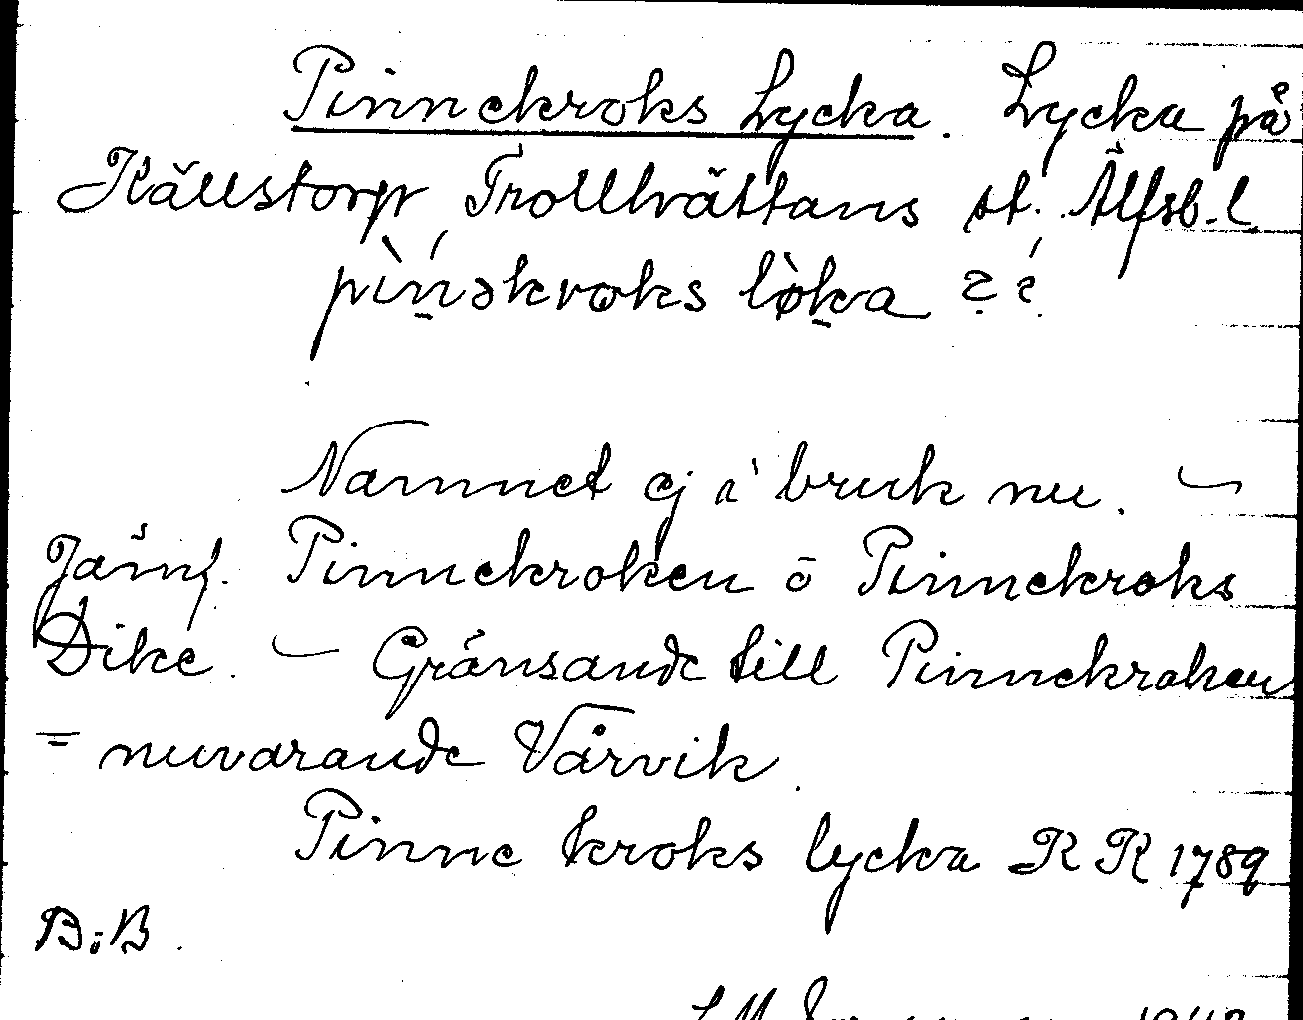 Pinnekroks Lycka. Lycka på
Källstorp, Trollhättans st. Älfsb. l.
pìn̠əkroks lø̀k̠a
Namnet ej i bruk nu. –
Jämf. Pinnekroken o Pinnekroks
Dike. – Gränsande till Pinnekroken
= nuvarande Vårvik.
Pinne kroks lycka RR 1789
B.B.